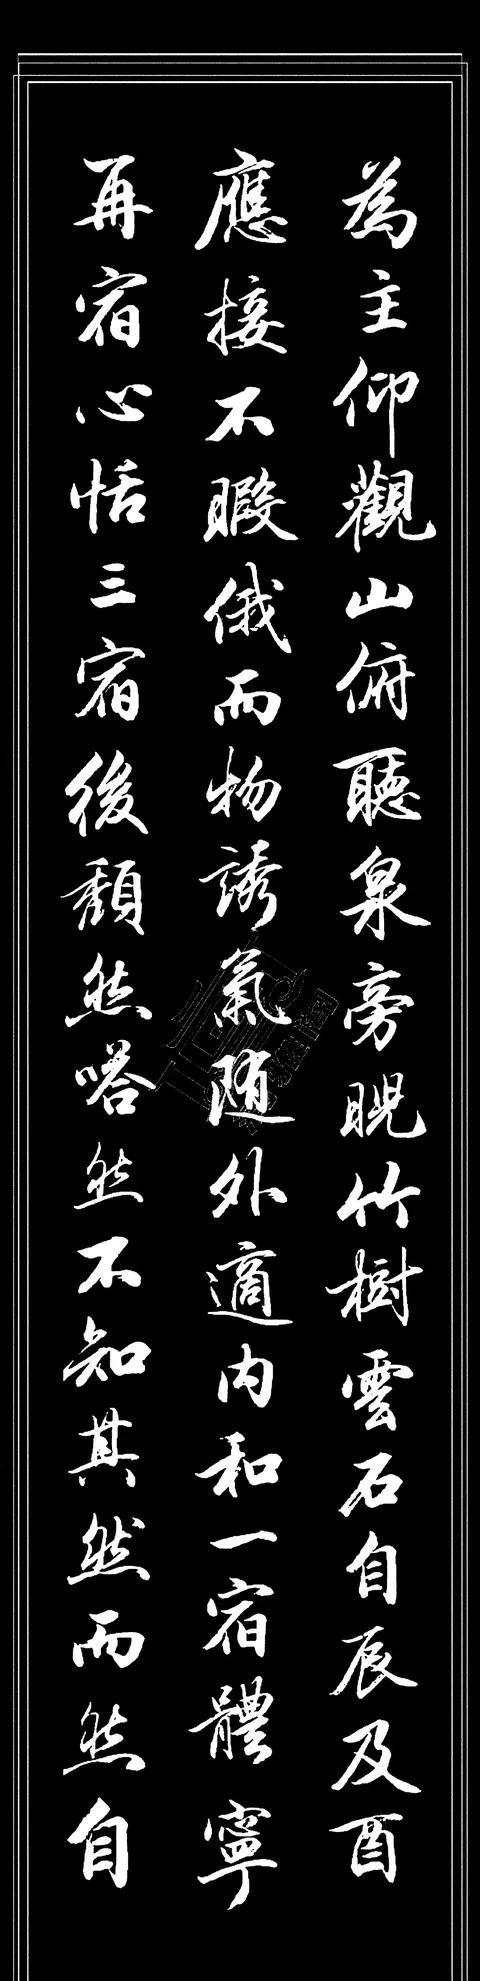 為主仰觀山俯聽泉旁睨竹樹雲石自辰及酉
應接不暇俄而物誘氣随外適内和一宿體寧
再宿心恬三宿後頹然嗒然不知其然而然自